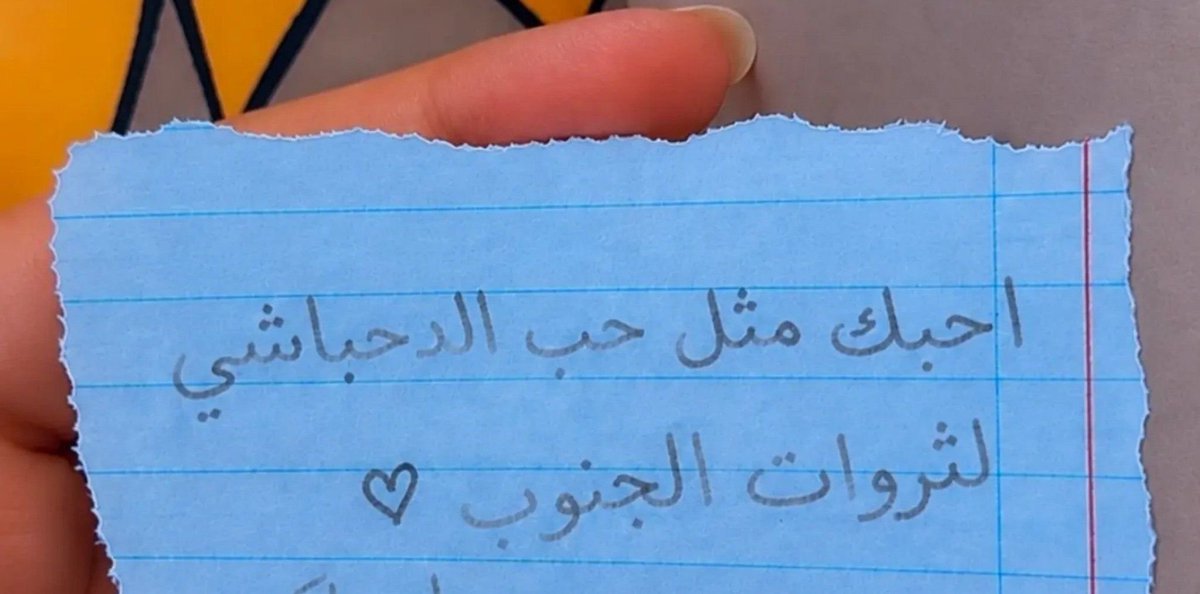 احبك مثل حب الدحباشي
لثروات الجنوب ♡